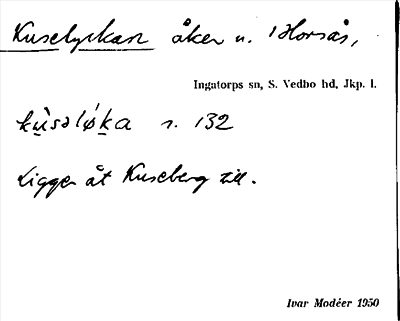 Kuselyckan åker u. Horsås,
Ingatorps sn, S. Vedbo hd, Jkp. l.
kùsəlø̀ka s. 132
Ligger åt Kuseberg till.
Ivar Modéer 1950